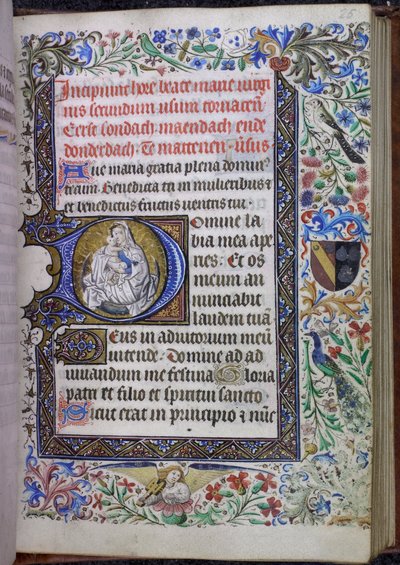 25
Incipiunt hore beate marie virgi
nis secundum usum tornaceñ
Eerst sondach maendach ende
donderdach Te mattenen · ūsus
Aue maria gratia plena domin⁹
tecum. Benedicta tu in mulieribus &
et benedictus fructus ventris tui.
Domine la
bia mea ape
ries: Et os
meum an
nunciabit
laudem tuā
Deus in adiutorium meū
intende. Domine ad ad
iuuandum me festina Gloria
patri et filio et spiritui sancto
Sicut erat in principio & nūc